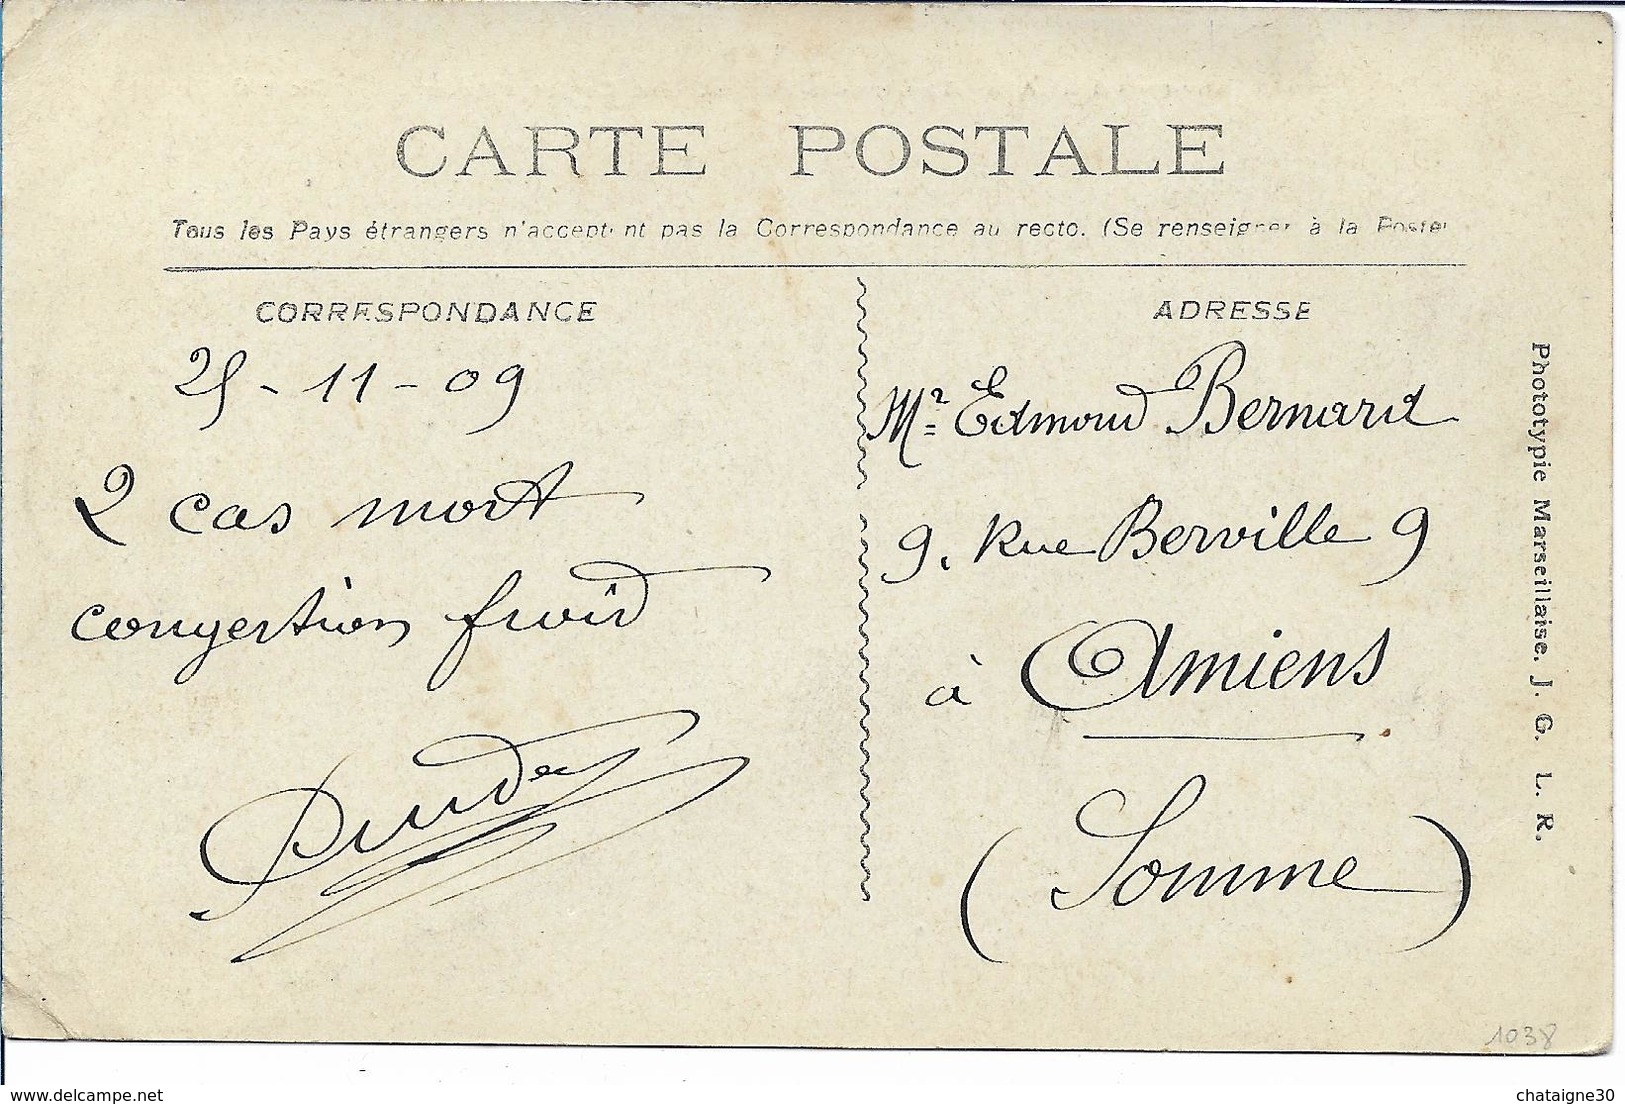 CARTE POSTALE
Tous les Pays étrangers n'acceptent pas la Correspondance au recto. (Se renseigner à la Poste)
CORRESPONDANCE
25 - 11 - 09
2 cas mort
congestion froid
ADRESSE
Mr Edmond Bernard
9, Rue Berville 9
à Amiens
(Somme)
Phototypie Marseillaise. J. G. L. R.
1038
delcampe.net
chataigne30